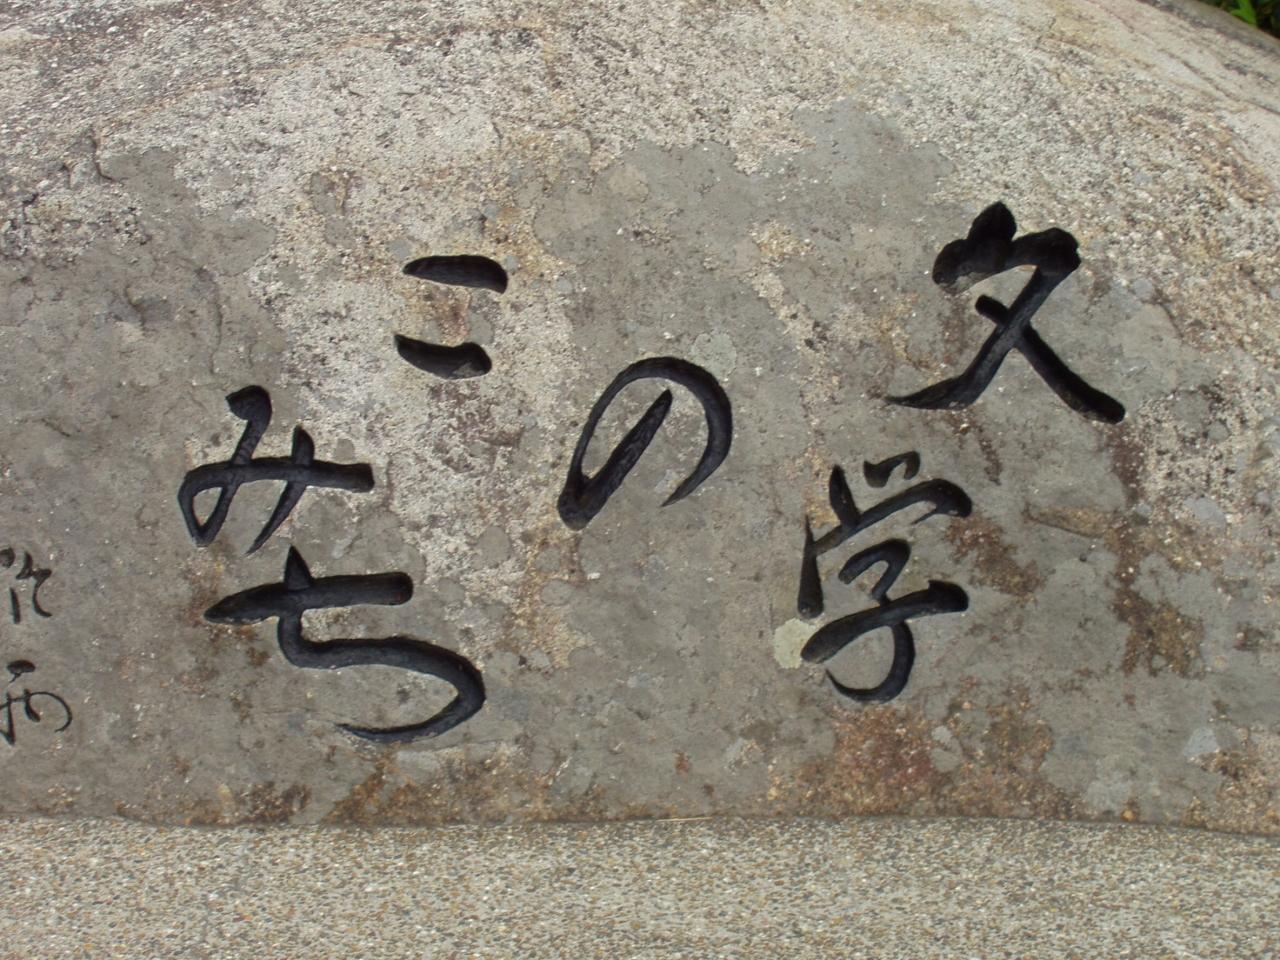 文学のこみち